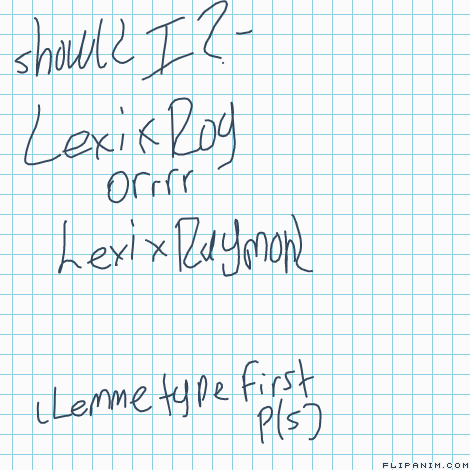 should I?-
LexixRoy
orrrr
LexixRaymond
Lemme type first
p(s)
FLIPANIM.COM